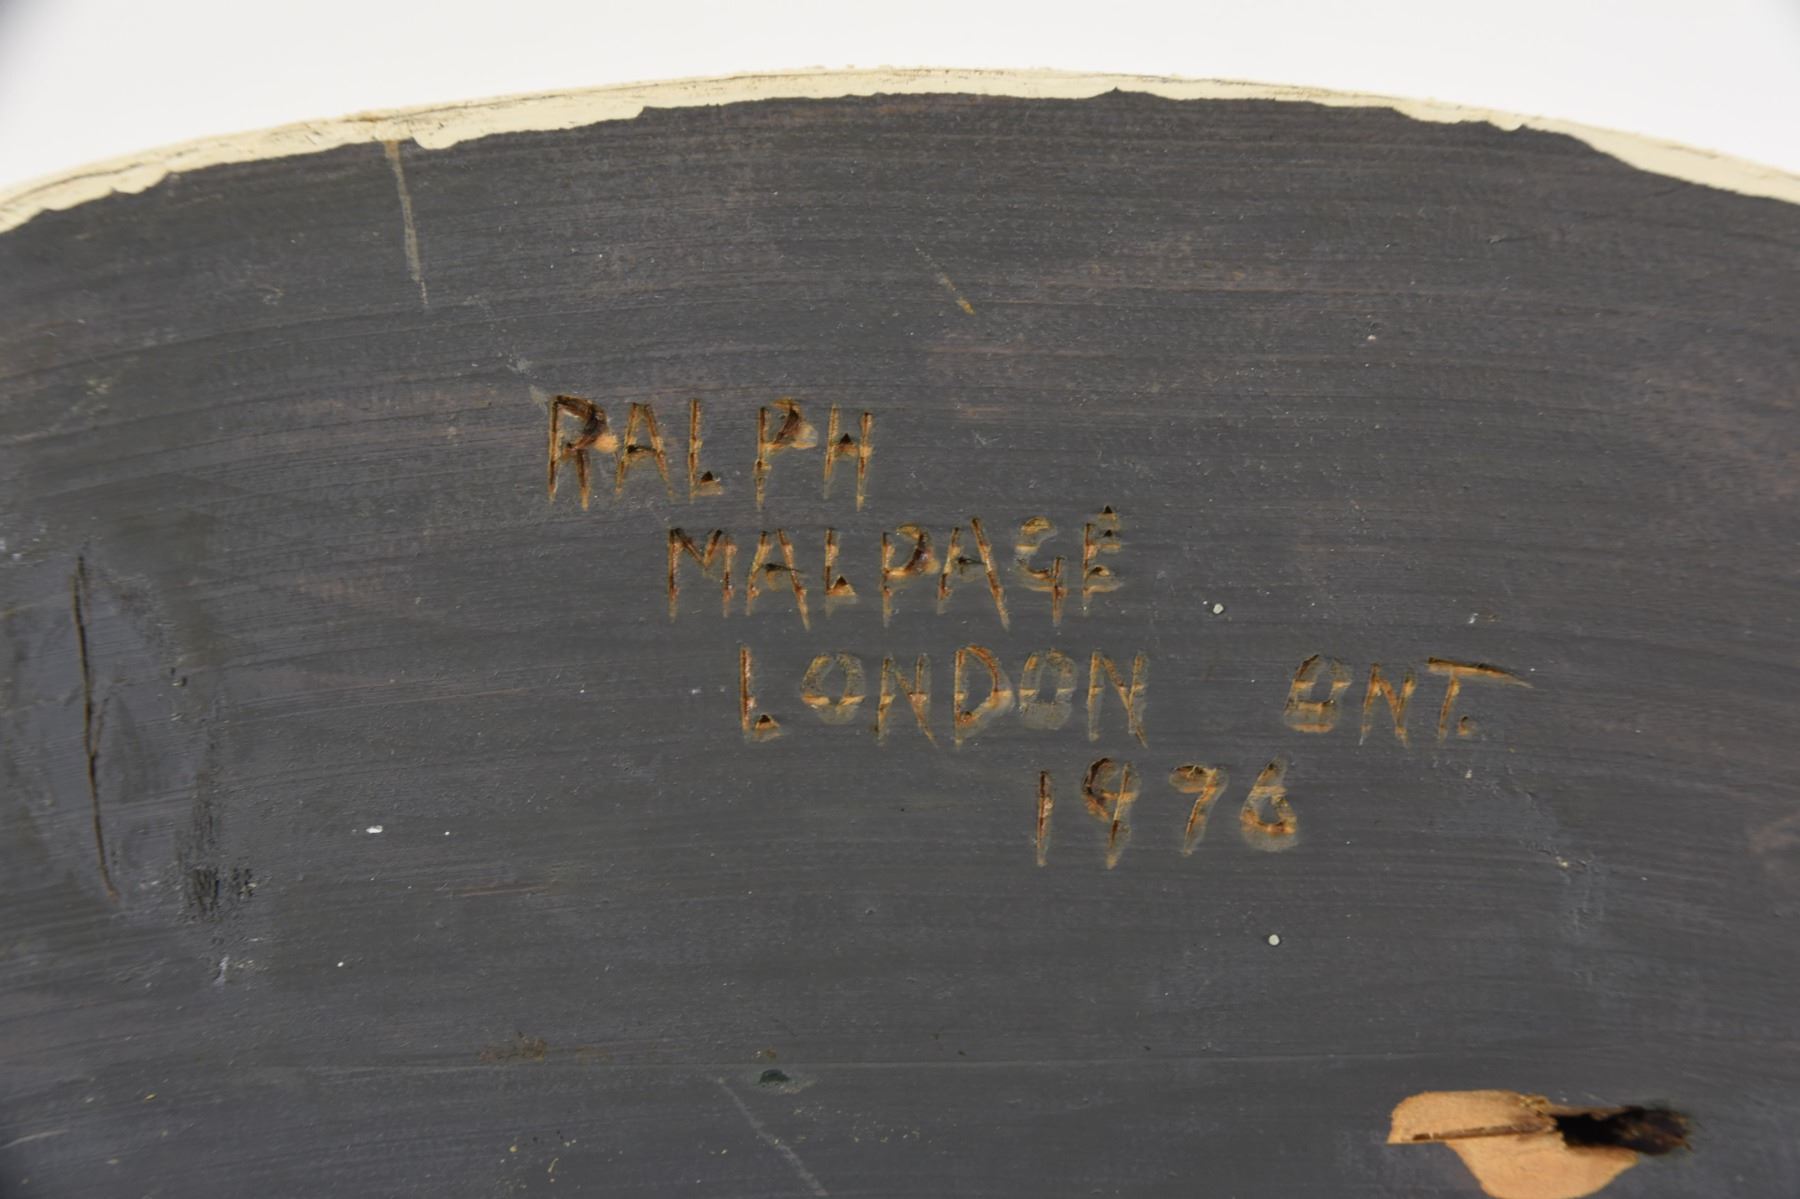 RALPH
MALPAGE
LONDON ONT.
1976